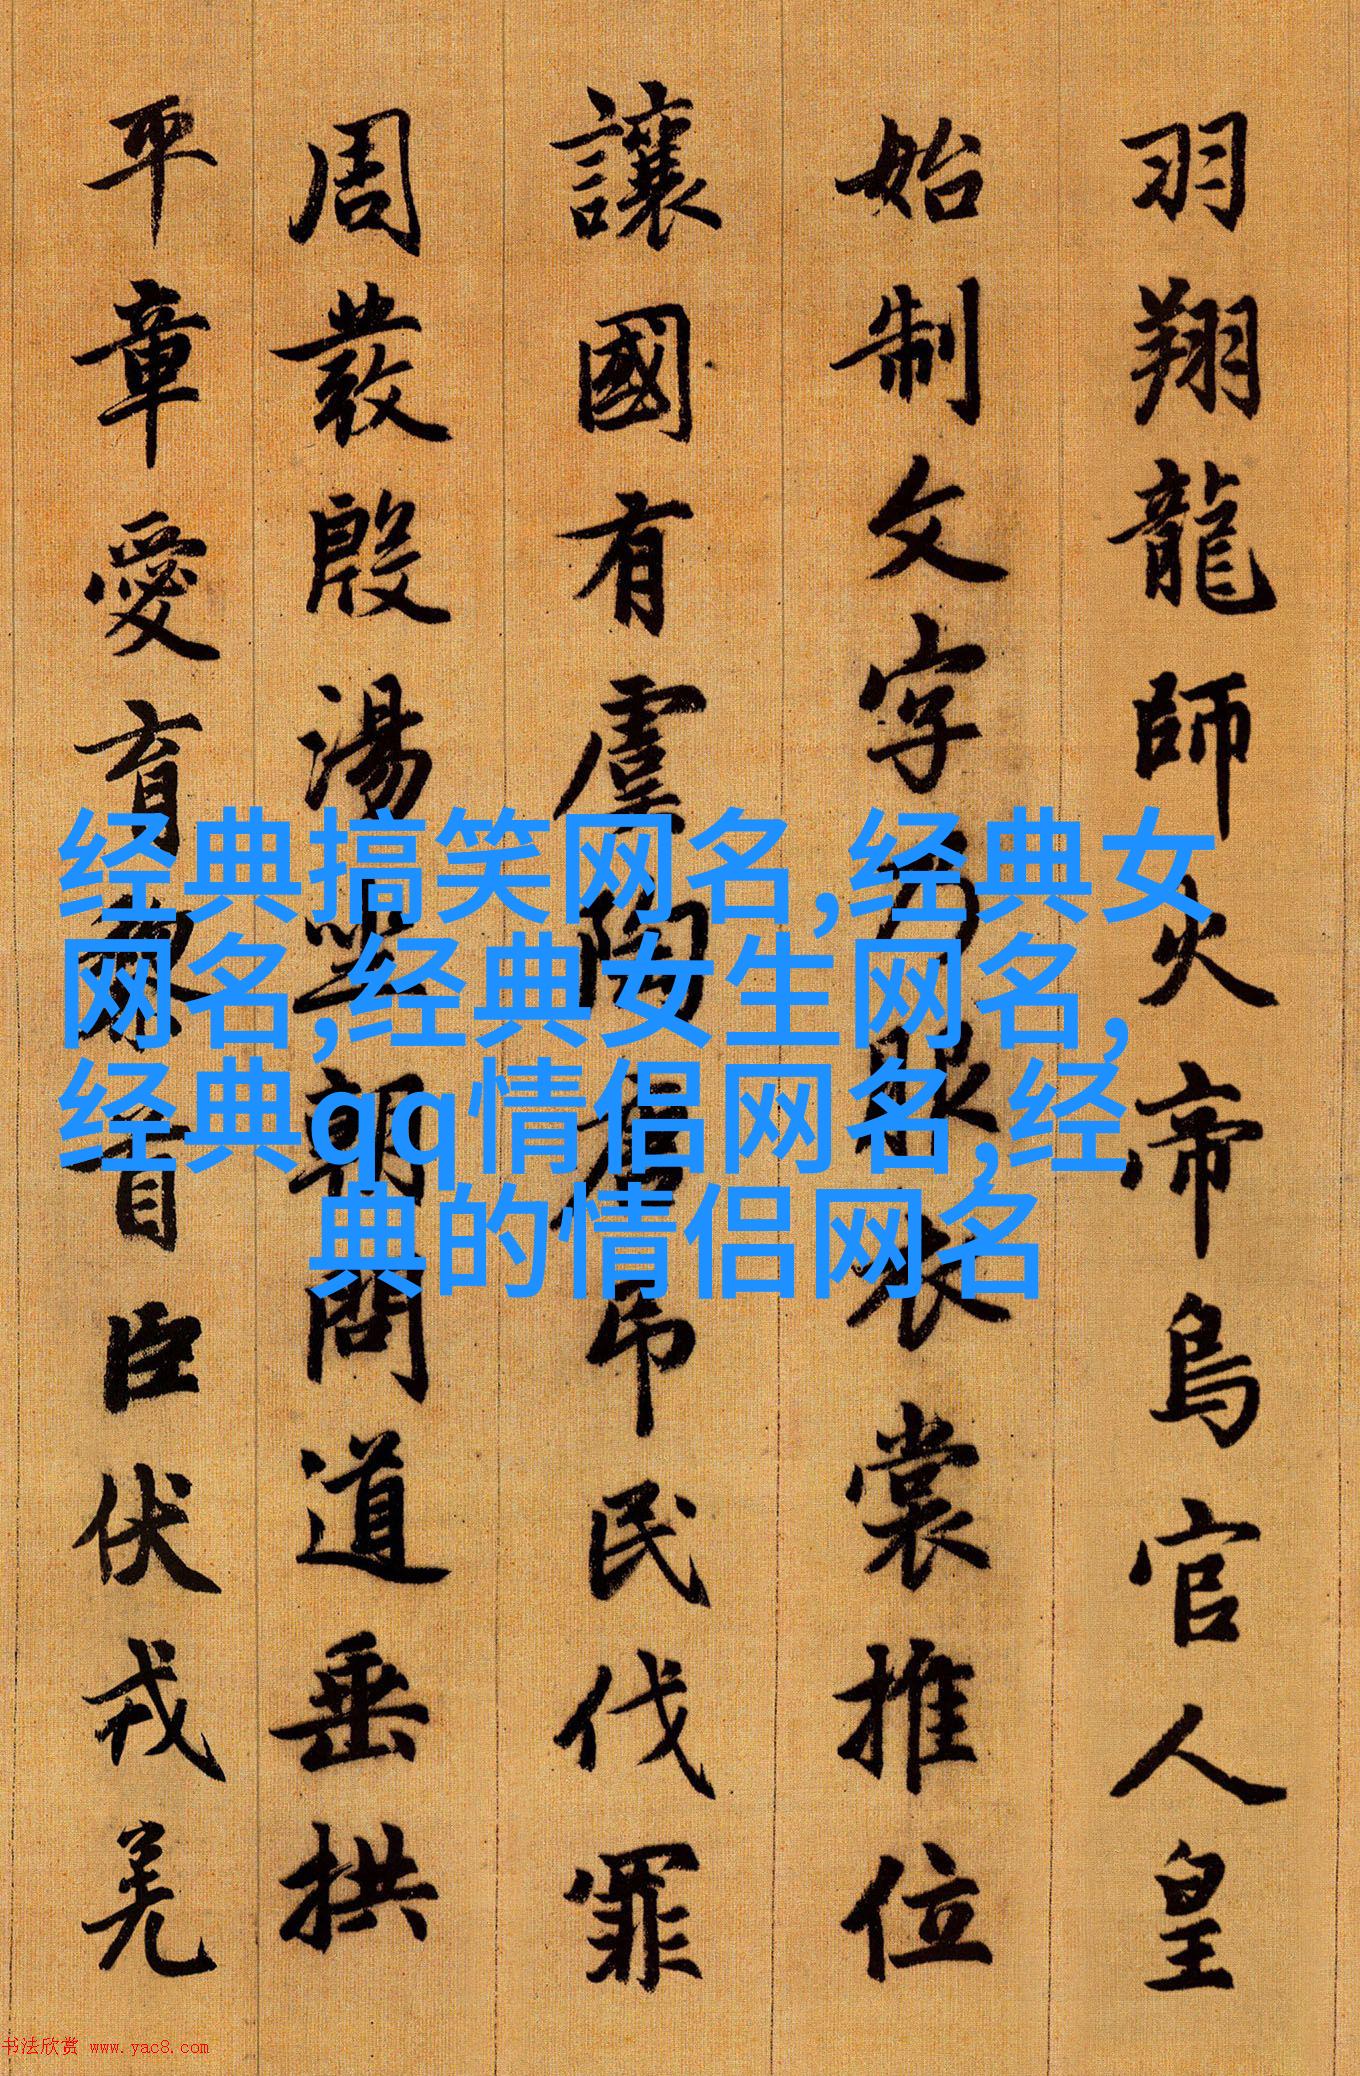 羽翔龍師火帝鳥官人皇
始制文字乃服衣裳推位
讓國有虞陶唐吊民伐罪
周發殷湯坐朝問道垂拱
平章愛育黎首臣伏戎羌
经典搞笑网名,经典女
网名,经典女生网名,
经典qq情侣网名,经
典的情侣网名
书法欣赏 www.yac8.com